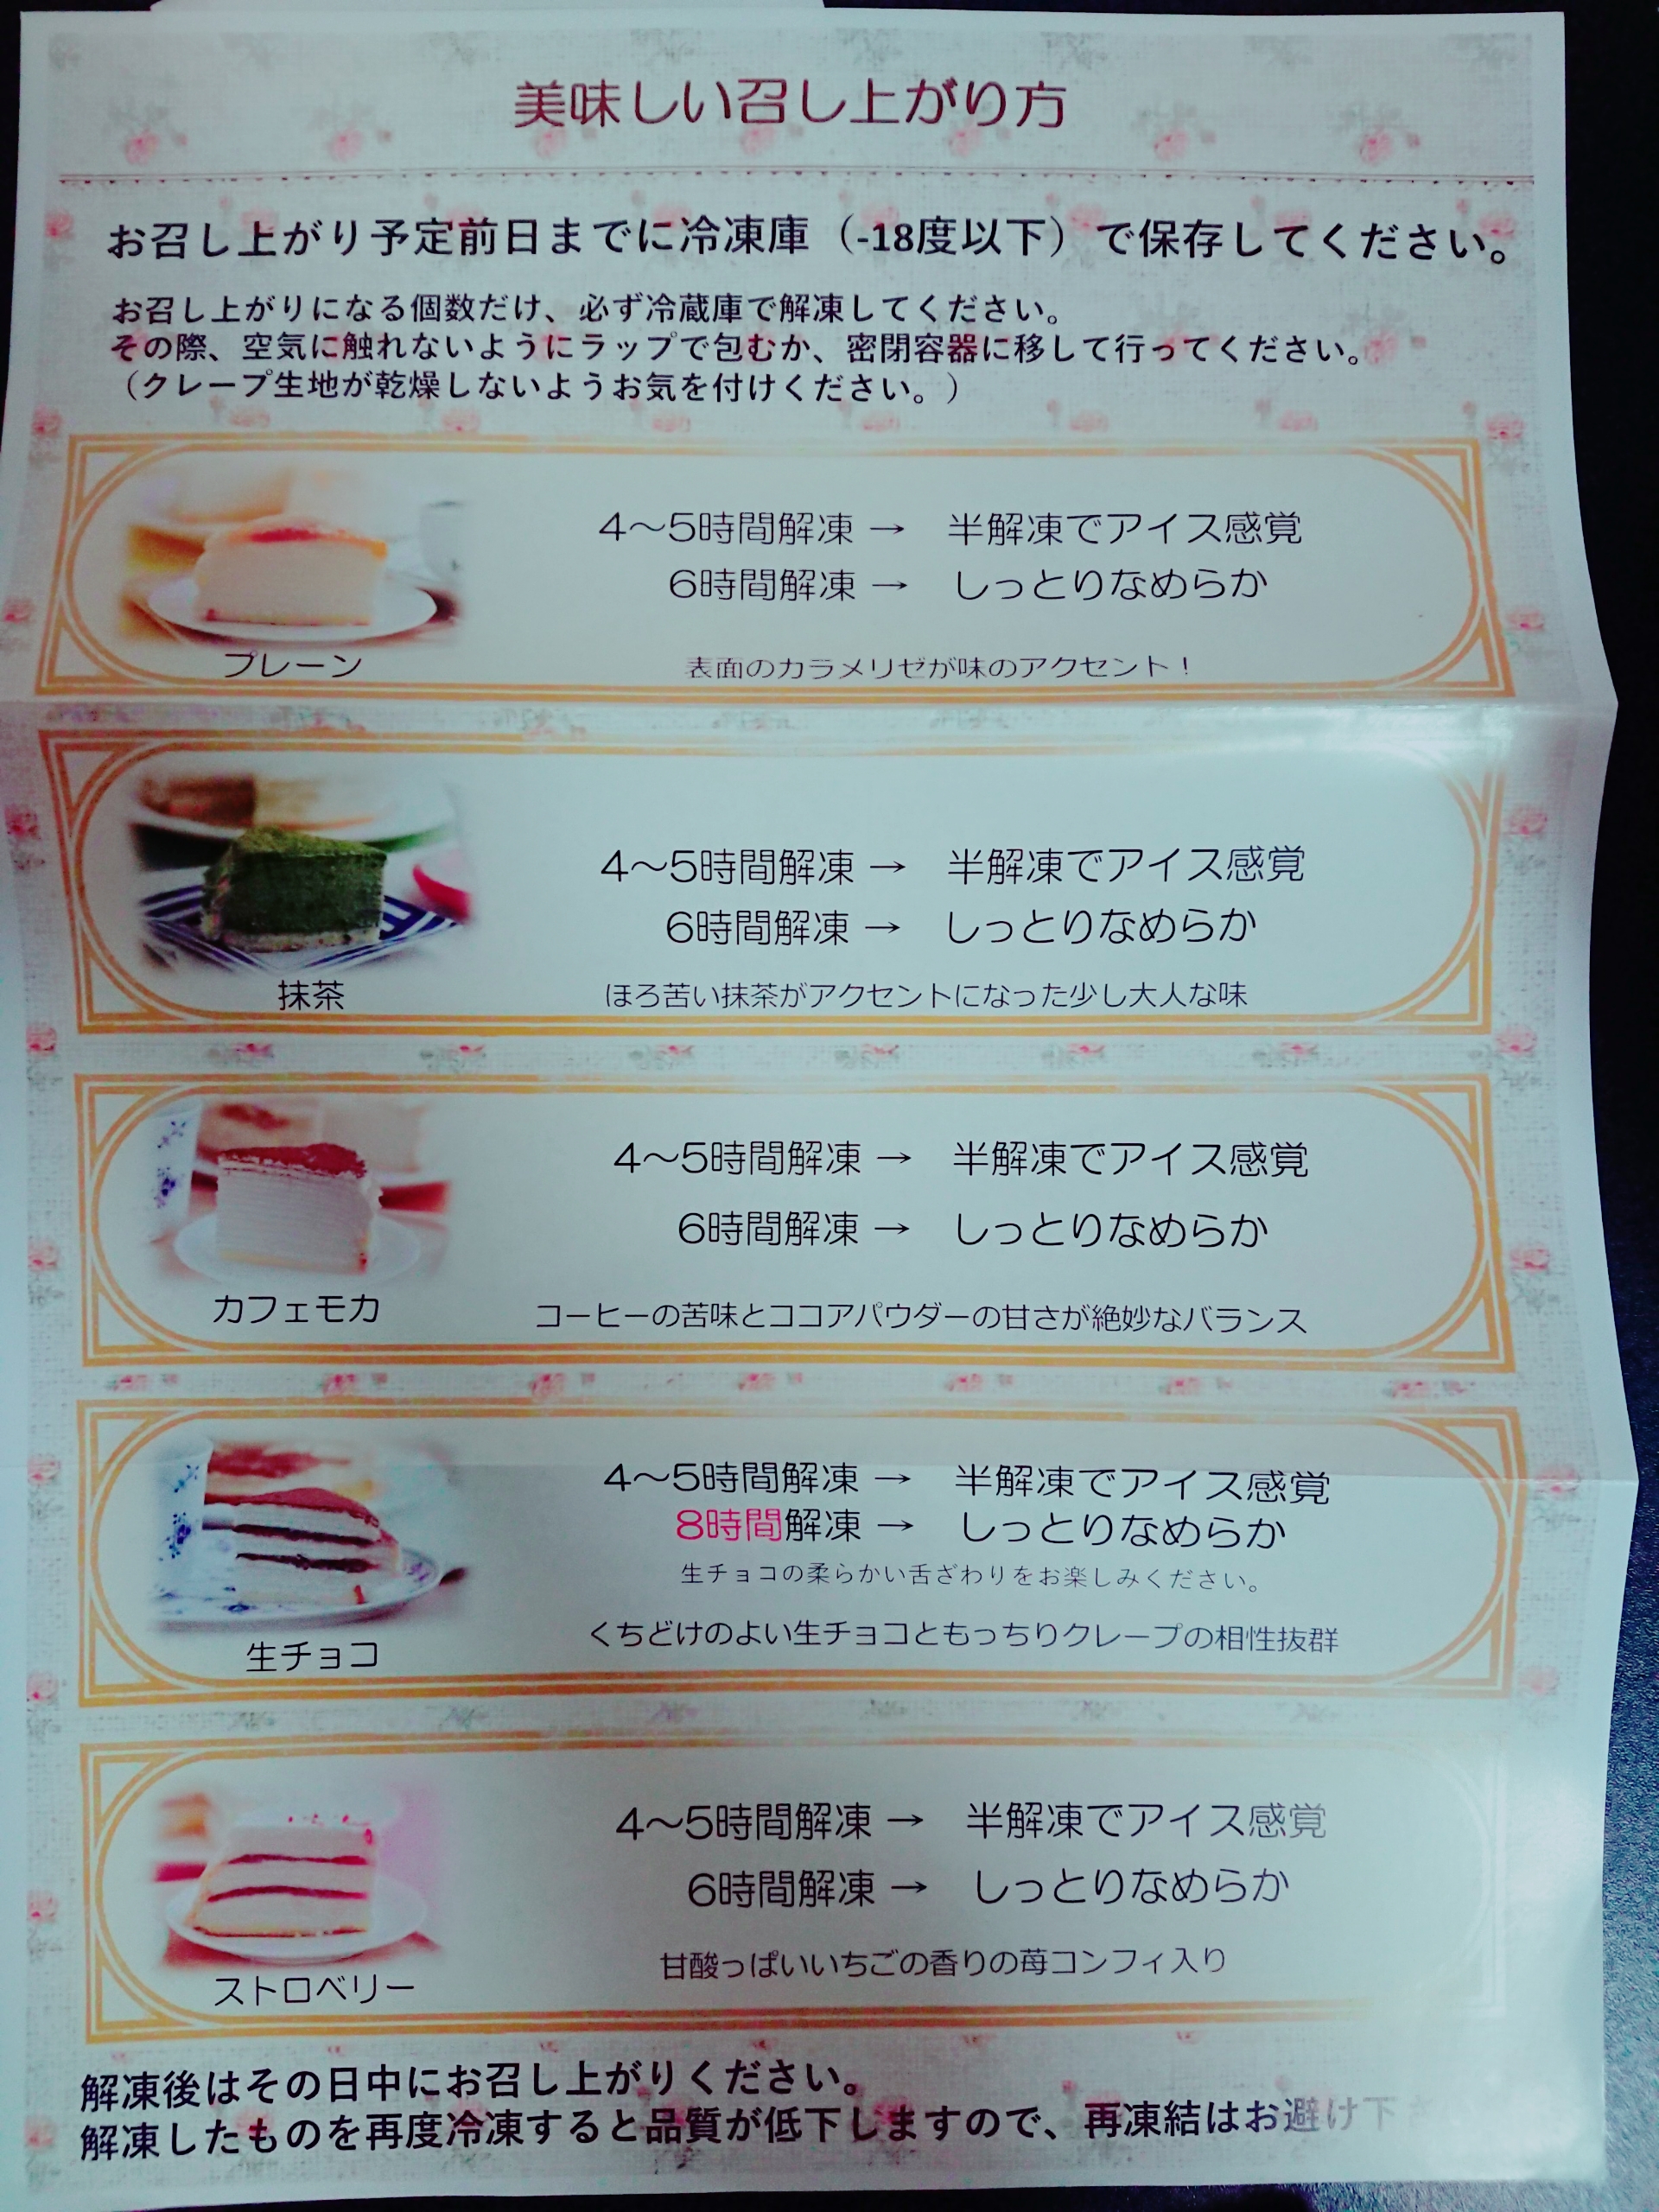 美味しい召し上がり方
お召し上がり予定前日までに冷凍庫（-18度以下）で保存してください。
お召し上がりになる個数だけ、必ず冷蔵庫で解凍してください。
その際、空気に触れないようにラップで包むか、密閉容器に移して行ってください。
（クレープ生地が乾燥しないようお気を付けください。）
4～5時間解凍 → 半解凍でアイス感覚
6時間解凍 → しっとりなめらか
プレーン 表面のカラメリゼが味のアクセント！
4～5時間解凍 → 半解凍でアイス感覚
6時間解凍 → しっとりなめらか
抹茶 ほろ苦い抹茶がアクセントになった少し大人な味
4～5時間解凍 → 半解凍でアイス感覚
6時間解凍 → しっとりなめらか
カフェモカ コーヒーの苦味とココアパウダーの甘さが絶妙なバランス
4～5時間解凍 → 半解凍でアイス感覚
8時間解凍 → しっとりなめらか
生チョコの柔らかい舌ざわりをお楽しみください。
くちどけのよい生チョコともっちりクレープの相性抜群
生チョコ
4～5時間解凍 → 半解凍でアイス感覚
6時間解凍 → しっとりなめらか
甘酸っぱいいちごの香りの苺コンフィ入り
ストロベリー
解凍後はその日中にお召し上がりください。
解凍したものを再度冷凍すると品質が低下しますので、再凍結はお避け下